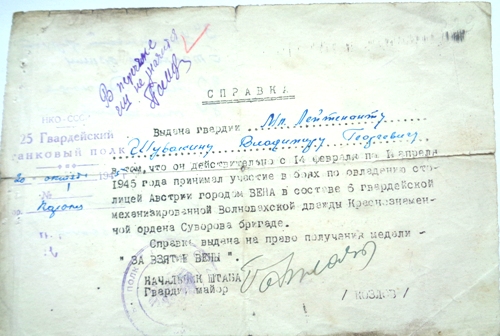 В
не значится
СПРАВКА
НКО-СССР
25 Гвардейский
танковый полк
Выдана гвардии Мл. Лейтенанту
Шувакину Владимиру Георгиевичу
в том, что он действительно с 14 февраля по 14 апреля
1945 года принимал участие в боях по овладению сто-
лицей Австрии городом ВЕНА в составе 6 гвардейской
механизированной Волновахской дважды Краснознамен-
ной ордена Суворова бригаде.
Справка выдана на право получения медали -
" ЗА ВЗЯТИЕ ВЕНЫ".
НАЧАЛЬНИК ШТАБА
Гвардии майор / КОЗЛОВ /